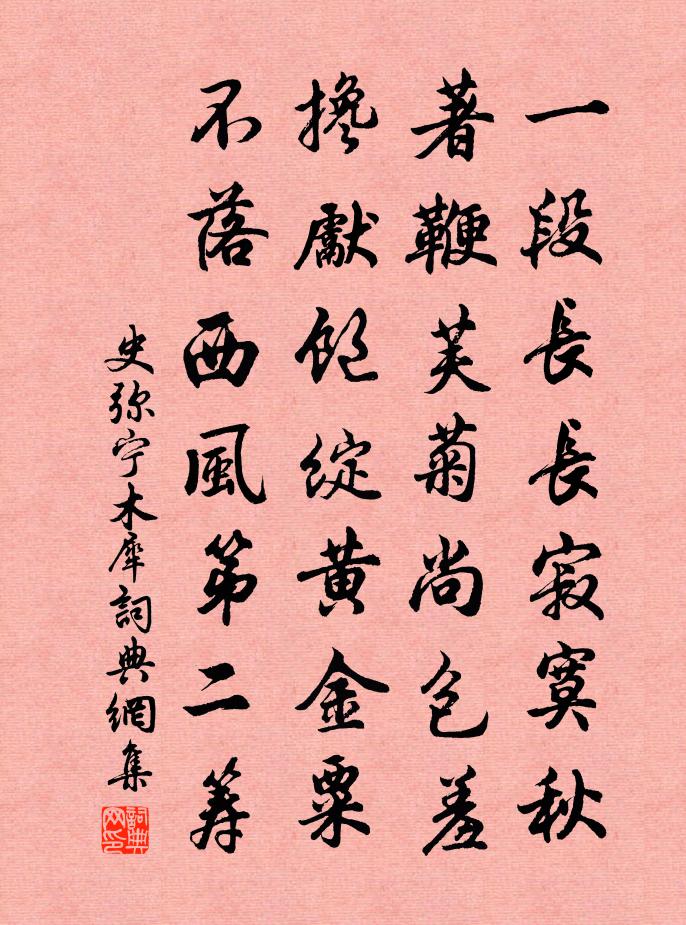 一段長長寂寞秋
著鞭芙菊尚包羞
攙獻飽綻黄金粟
不落西風第二筹
史弥宁木犀詞典網集
詞典网印